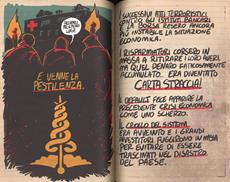 E VENNE LA
PESTILENZA.
I SUCCESSIVI ATTI TERRORISTICI
CONTRO GLI ISTITUTI BANCARI
E LA BORSA RESERO ANCORA
PIÙ INSTABILE LA SITUAZIONE
ECONOMICA.
I RISPARMIATORI CORSERO IN
MASSA A RITIRARE I LORO AVERI,
MA QUEL DENARO FATICOSAMENTE
ACCUMULATO... ERA DIVENTATO
CARTA STRACCIA!
IL DEFAULT FECE APPARIRE LA
PRECEDENTE CRISI ECONOMICA
COME UNO SCHERZO.
IL CROLLO DEL SISTEMA
ERA AVVENUTO E I GRANDI
INVESTITORI FUGGIRONO IN MASSA
PER EVITARE DI ESSERE
TRASCINATI NEL DISASTRO
DEL PAESE.